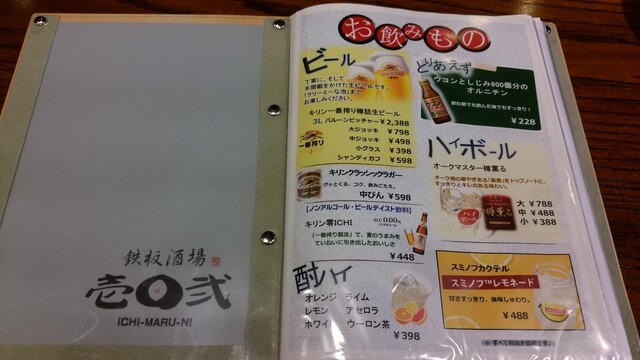 鉄板酒場
壱〇弐
ICHI-MARU-NI
お飲みもの
ビール
丁寧に、そして
手間暇をかけた生ビールです。
「クリーミーな泡」まで
お楽しみください。
キリン一番搾り樽詰生ビール
3L バルーンピッチャー ¥2,388
大ジョッキ ¥798
中ジョッキ ¥498
小グラス ¥398
シャンディガフ ¥598
一番搾り
キリンクラッシックラガー
グッとくる、コク、飲みごたえ。
中びん ¥598
[ノンアルコール・ビールテイスト飲料]
キリン零ICHI
ALC.0.00%
「一番搾り製法」で、麦のうまみを
ていねいに引き出したおいしさ
¥448
酎ハイ
オレンジ ライム
レモン アセロラ
ホワイト ウーロン茶
¥398
とりあえず
ウコンとしじみ900個分の
オルニチン
飲む前でも飲んだ後でもすっきり!
¥228
ハイボール
オークマスター樽薫る
オーク樽の華やぎある「薫香」をトップノートに、
すっきりとキレのある味わい。
ハイボール
樽薫る
大 ¥788
中 ¥488
小 ¥388
スミノフカクテル
スミノフ™レモネード
甘さすっきり、後味しゅわり。
¥488
※すべて税抜き価格です。